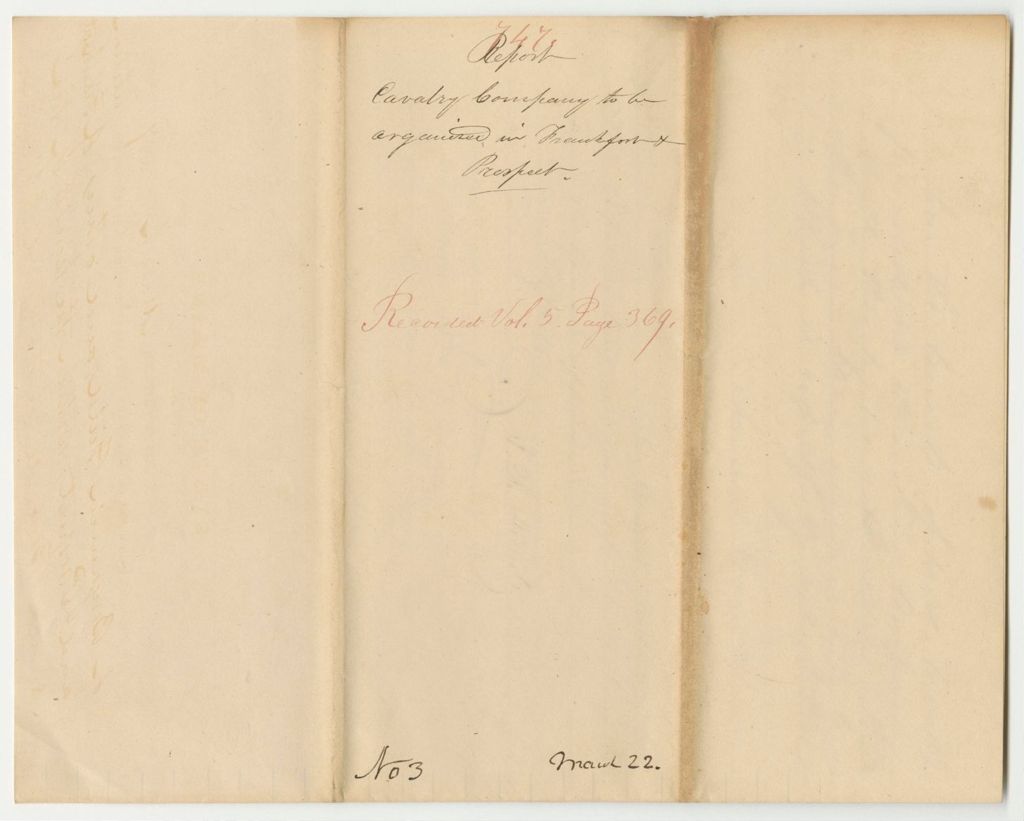 747.
Report
Cavalry Company to be
organized in Frankfort &
Prospect.
Recorded Vol. 5. Page 369.
No 3 March 22.